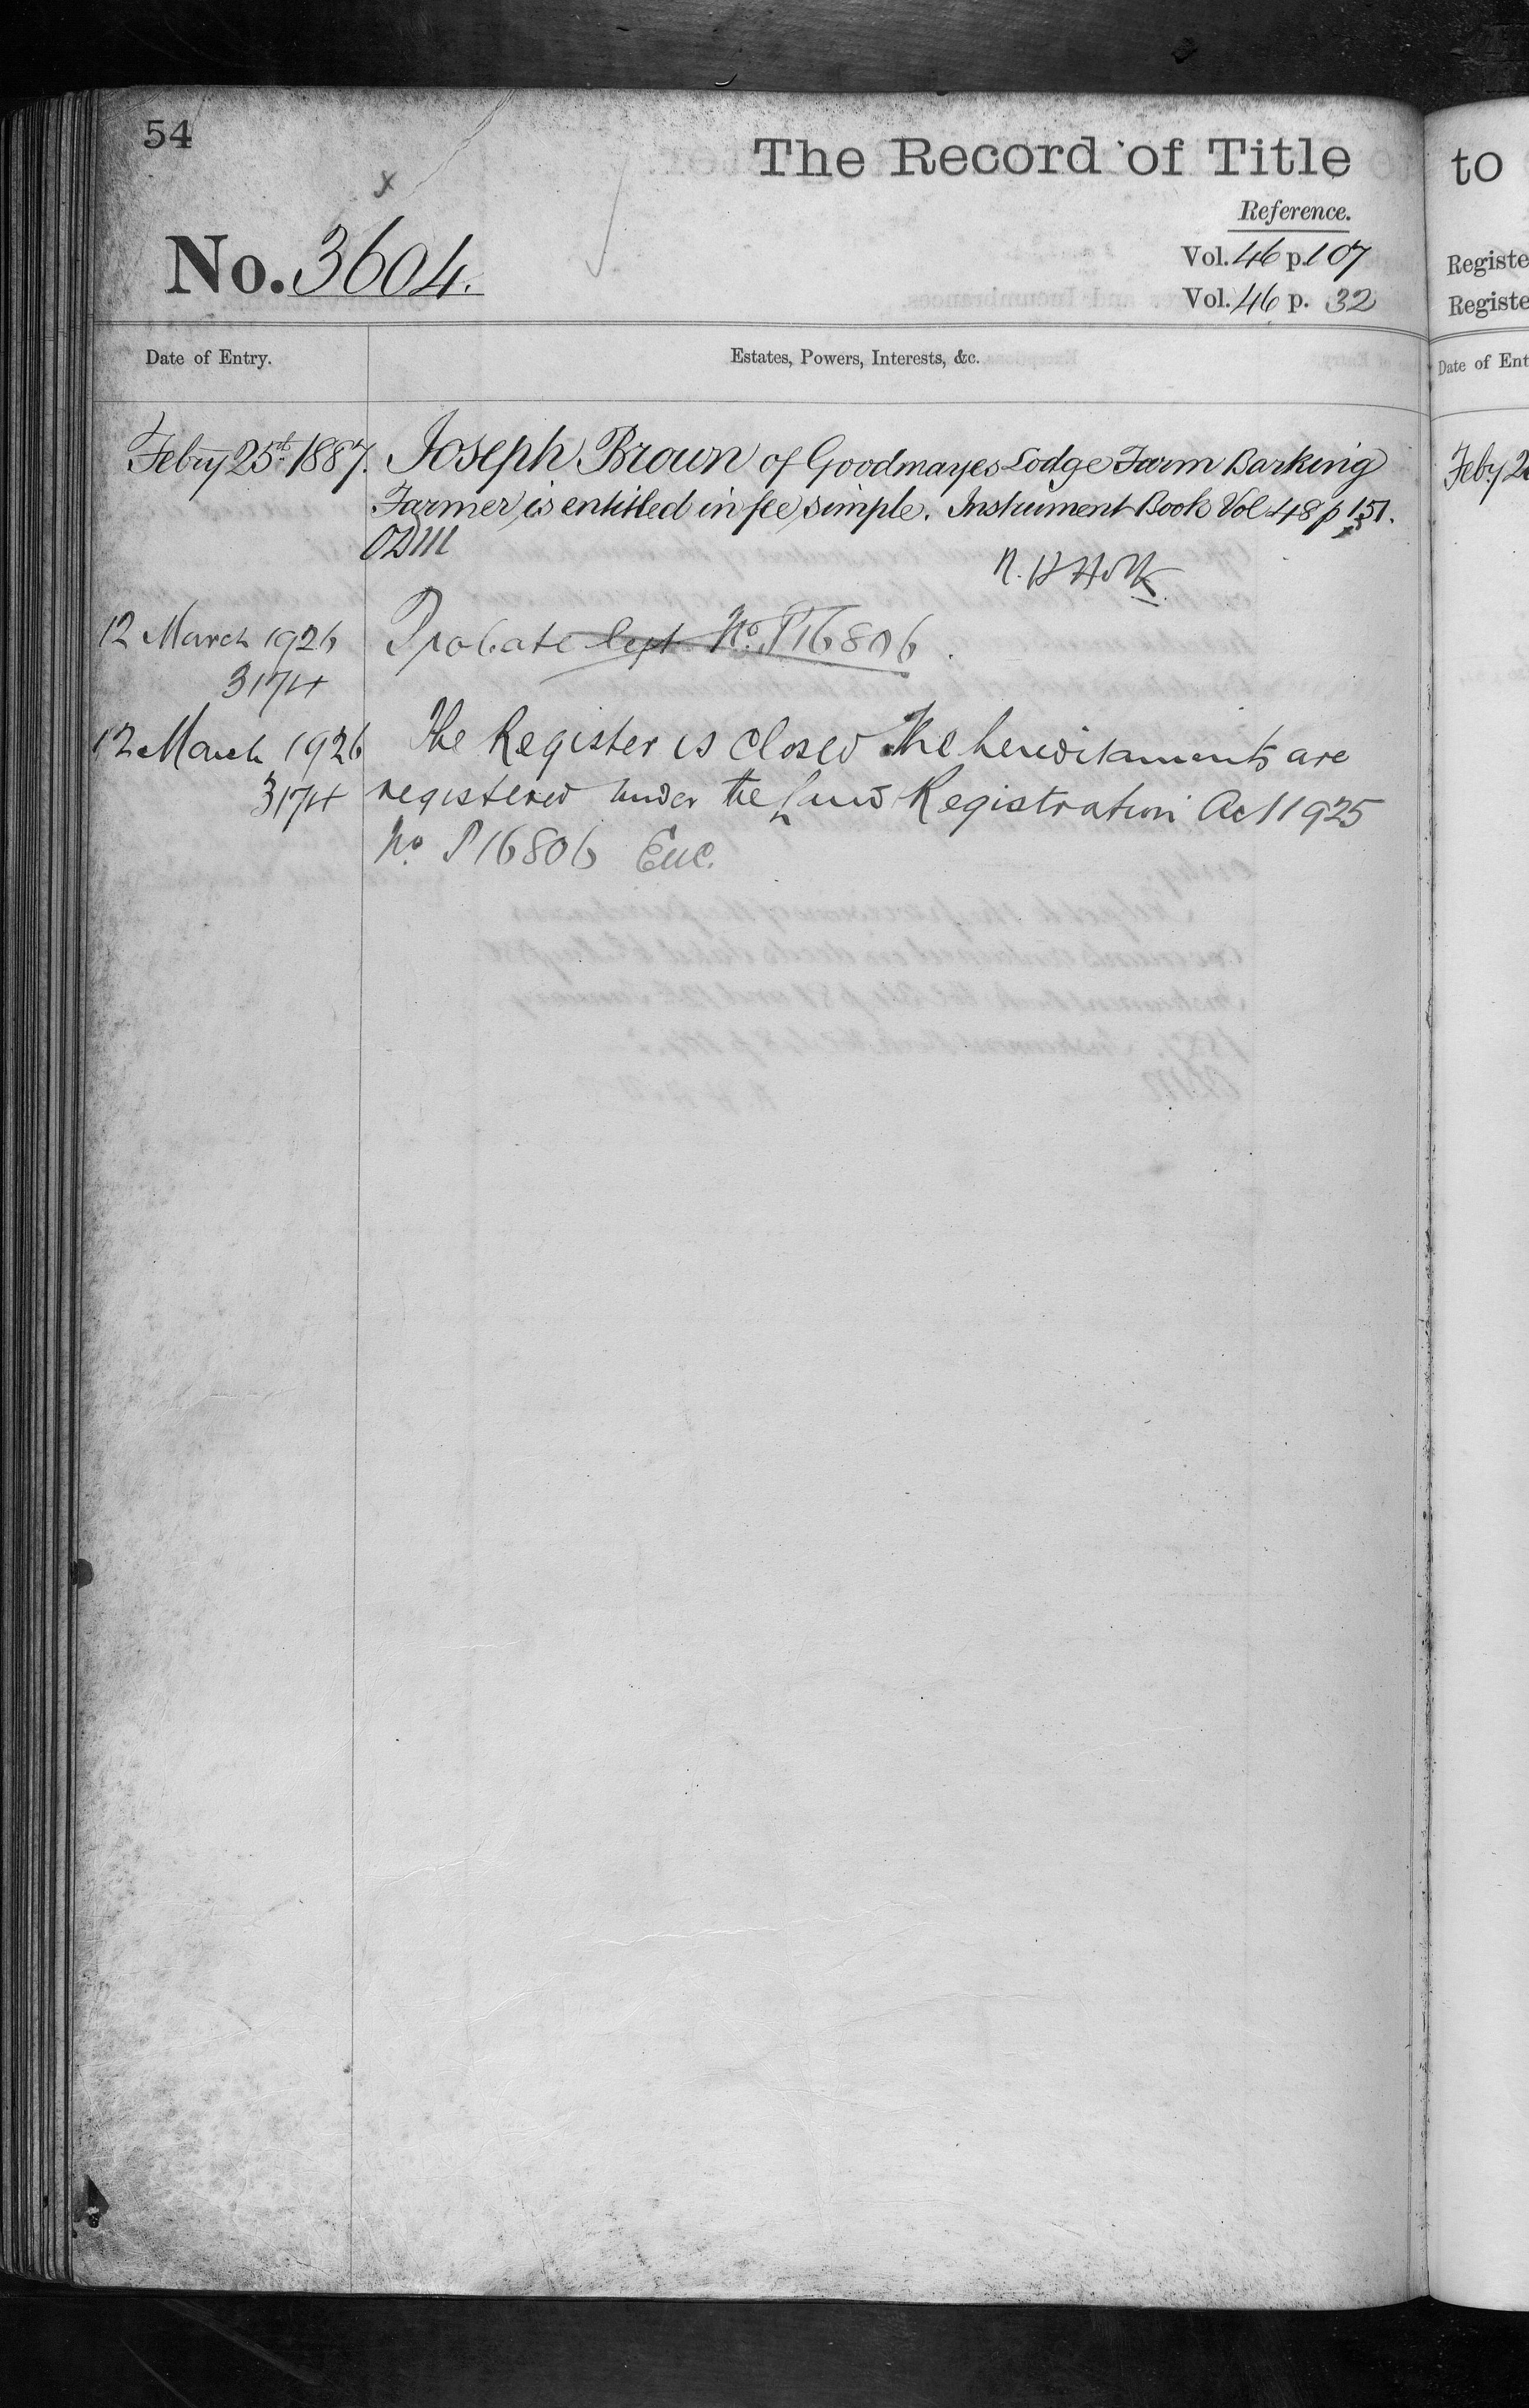 54
The Record of Title
Reference.
No. 3604.
Vol. 46 p. 107
Vol. 46 p. 32
Date of Entry.
Estates, Powers, Interests, &c.
Feby 25th 1887. Joseph Brown of Goodmayes Lodge Farm Barking
Farmer, is entitled in fee simple. Instrument Book Vol 48 p 151.
ODM
12 March 1926 Probate lept No. P16806.
3174
12 March 1926 The Register is closed The hereditaments are
3174 registered under the Land Registration Act 1925
No. P16806 EUC.
to
Registe
Registe
Date of Ent
Feby 2